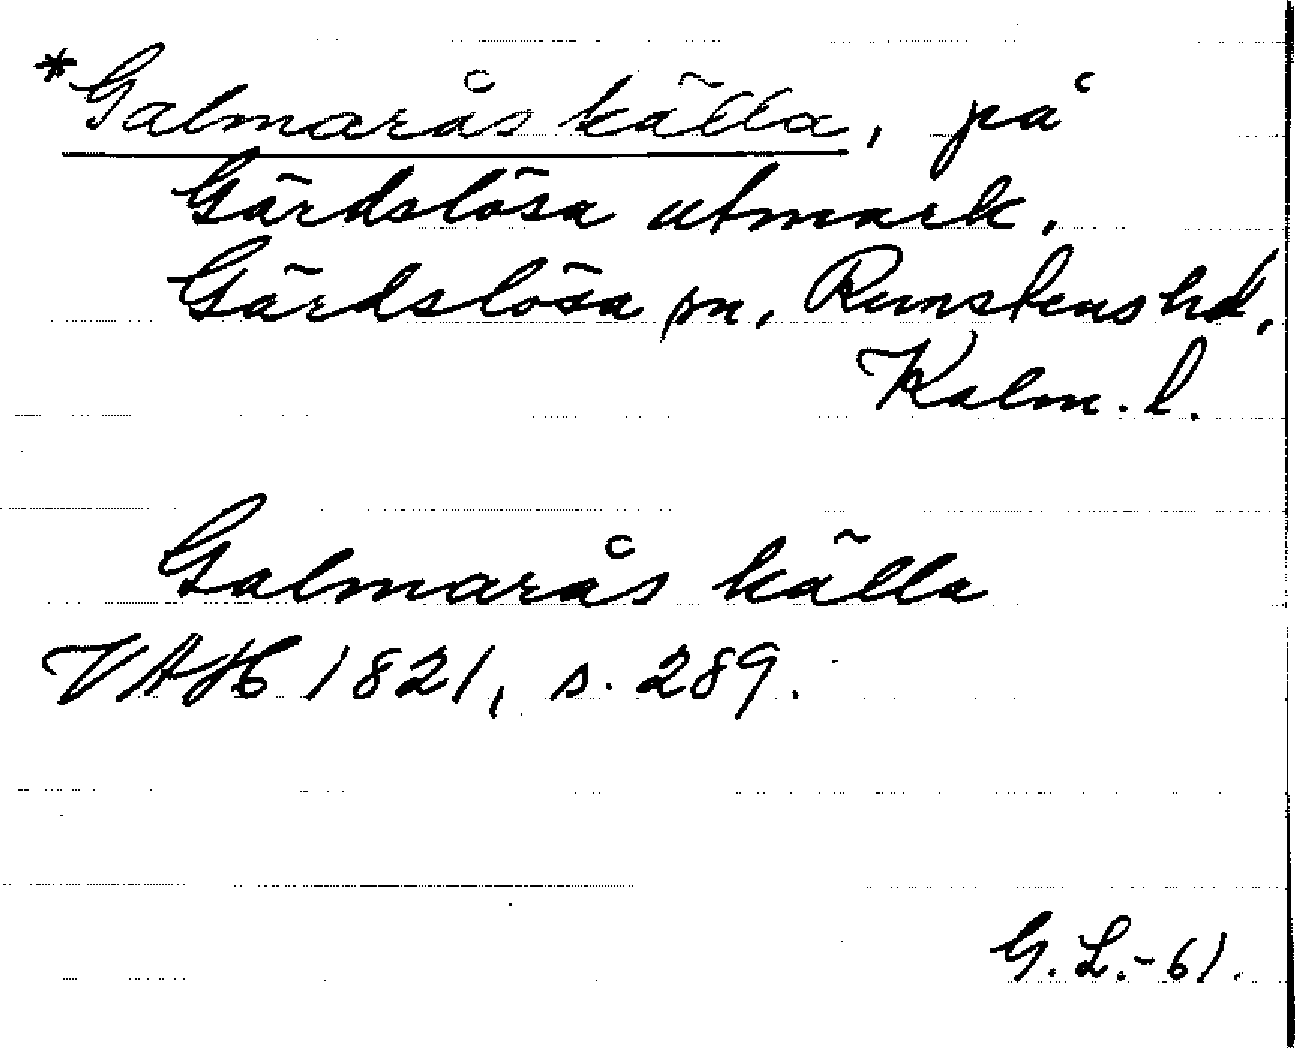 *Galmarås källa, på
Gärdslösa utmark.
Gärdslösa sn, Runstens hd,
Kalm. l.
Galmarås källa
VAH 1821, s. 289.
G. L. - 61.